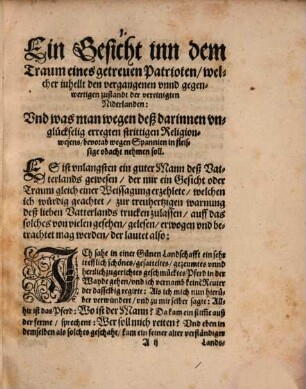 Ein Gesicht inn dem
Traum eines getreuen Patrioten / wel-
cher inhelt den vergangenen vnnd gegen-
wertigen zustandt der vereinigten
Niderlanden:
Vnd was man wegen deß darinnen vn-
glückselig erregten strittigen Religion-
wesens / bevorab wegen Spannien in fleis-
sige obacht nehmen soll.
ES ist vnlangsten ein guter Mann deß Vat-
terlands gewesen / der mir ein Gesicht oder
Traum gleich einer Weissagung erzehlete / welchen
ich würdig geachtet / zur treuhertzigen warnung
deß lieben Vatterlands trucken zulassen / auff das
solches von vielen gesehen / gelesen / erwogen vnd be-
trachtet mag werden / der lautet also:
ICh sahe in einer Günen Landschafft ein sehr
trefflich schönes / gesatteltes / gezeumtes vnnd
herzlich zugerichtes geschmücktes Pferd in der
Wayde gehen / vnd ich vernamb keine Reuter
der dasselbig regirte: Als ich mich nun hierü-
ber verwundert / vnd zu mir selber sagte: All-
hir ist das Pferd: Wo ist der Mann? Da kam ein stimme auß
der ferne / sprechent: Wer soll mich reiten? Vnd eben in
demselben als solches geschahe / kam ein feiner alter verständiger
A ij Lands-